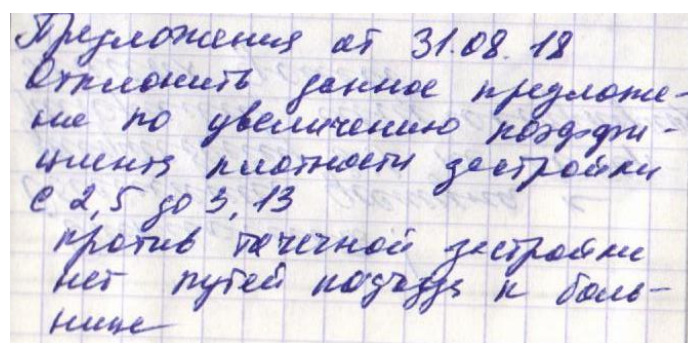 Предложения от 31.08.18
Отклонить данное предложе-
ние по увеличению коэффи-
циента плотности застройки
с 2,5 до 3,13
против точечной застройки
нет путей подъезда к боль-
нице